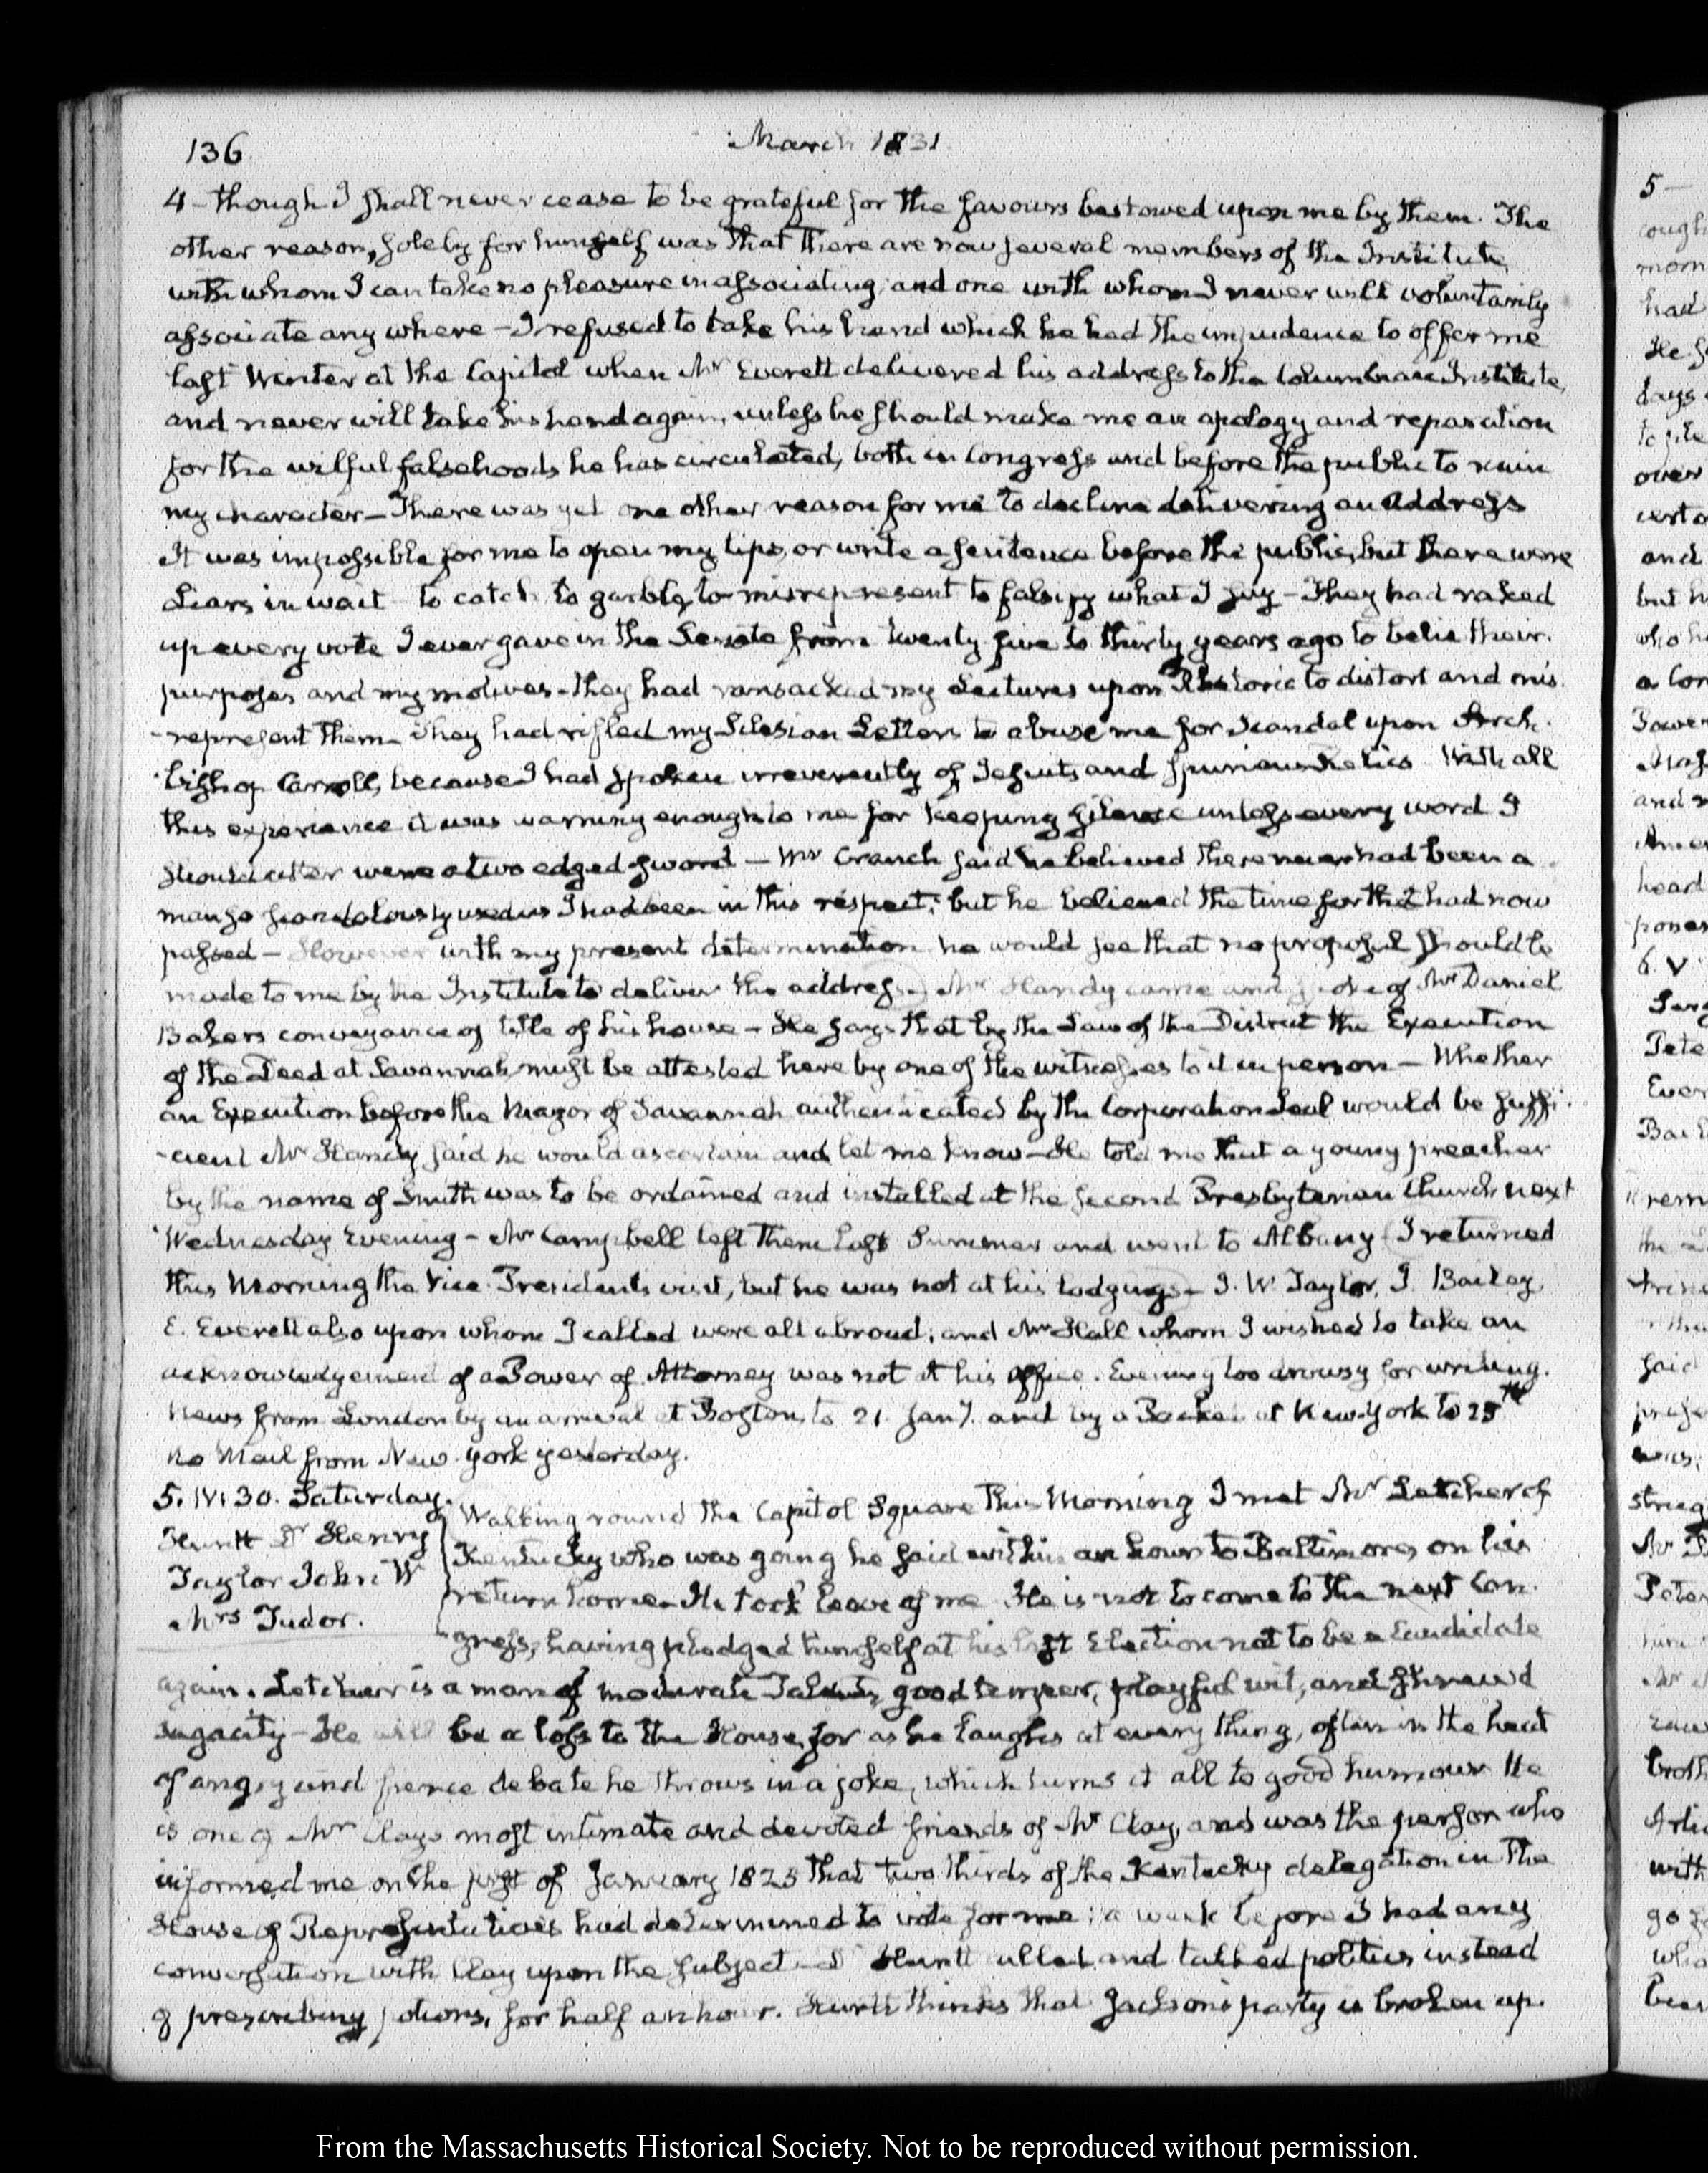 136
March 1831
4 – though I shall never cease to be grateful for the favours bestowed upon me by them. The
other reason, solely for himself was that there are now several members of the Institute,
with whom I can take no pleasure in associating; and one with whom I never will voluntarily
associate any where – I refused to take his hand which he had the impudence to offer me
last Winter at the Capitol when Mr Everett delivered his address to the Columbian Institute,
and never will take his hand again, unless he should make me an apology and reparation
for the wilful falsehoods he has circulated, both in Congress and before the public to ruin
my character – There was yet one other reason for me to decline delivering an Address
It was impossible for me to open my lips, or write a sentence before the public, but there were
Liars in wait to catch to garble, to misrepresent to falsify what I say – They had raked
up every vote I ever gave in the Senate from twenty five to thirty years ago to belie their
purposes and my motives – they had ransacked my Lectures upon Rhetoric to distort and mis-
-represent them – They had rifled my Silesian Letters to abuse me for Scandal upon Arch-
-bishop Carroll, because I had spoken irreverently of Jesuits and spurious Relics. With all
this experience it was warning enough to me for keeping silence unless every word I
should utter were a two edged sword – Mr Cranch said he believed there never had been a
man so scandalously used as I had been in this respect; but he believed the time for that had now
passed – However with my present determination he would see that no proposal should be
made to me by the Institute to deliver the address – Mr Handy came and spoke of Mr Daniel
Bakers conveyance of title of his house – He says that by the Law of the District the Execution
of the Deed at Savannah must be attested here by one of the witnesses to it in person – Whether
an Execution before the Mayor of Savannah authenticated by the Corporation Seal would be suffi-
-cient Mr Handy said he would ascertain and let me know – He told me that a young preacher
by the name of Smith was to be ordained and installed at the second Presbyterian Church next
Wednesday Evening – Mr Campbell left them last Summer and went to Albany – I returned
this Morning the Vice-Presidents visit, but he was not at his lodgings – J. W. Taylor, J. Bailey,
E. Everett also upon whom I called were all abroad; and Mr Hall whom I wished to take an
acknowledgement of a Power of Attorney was not at his office. Evening too drowsy for writing.
News from London by an arrival at Boston, to 21. Jany. and by a Packet at New-York to 25th
No Mail from New-York yesterday.
5. IV: 30. Saturday.
Huntt Dr Henry
Taylor John W
Mrs Tudor.
Walking round the Capitol Square This Morning I met Mr Letcher of
Kentucky who was going he said within an hour to Baltimore, on his
return home – He took leave of me He is not to come to the next Con-
-gress, having pledged himself at his last Election not to be a Candidate
again. Letcher is a man of moderate Talents, good temper, playful wit, and shrewd
sagacity – He will be a loss to the House, for as he laughs at every thing, often in the heat
of angry and fierce debate he throws in a joke, which turns it all to good humour He
is one of Mr Clays most intimate and devoted friends of Mr Clay, and was the person who
informed me on the first of January 1825 that two thirds of the Kentucky delegation in the
House of Representatives had determined to vote for me; a week before I had any
conversation with Clay upon the subject – Dr Huntt called and talked politics instead
of prescribing potions, for half an hour. Huntt thinks that Jacksons party is broken up.
From the Massachusetts Historical Society. Not to be reproduced without permission.